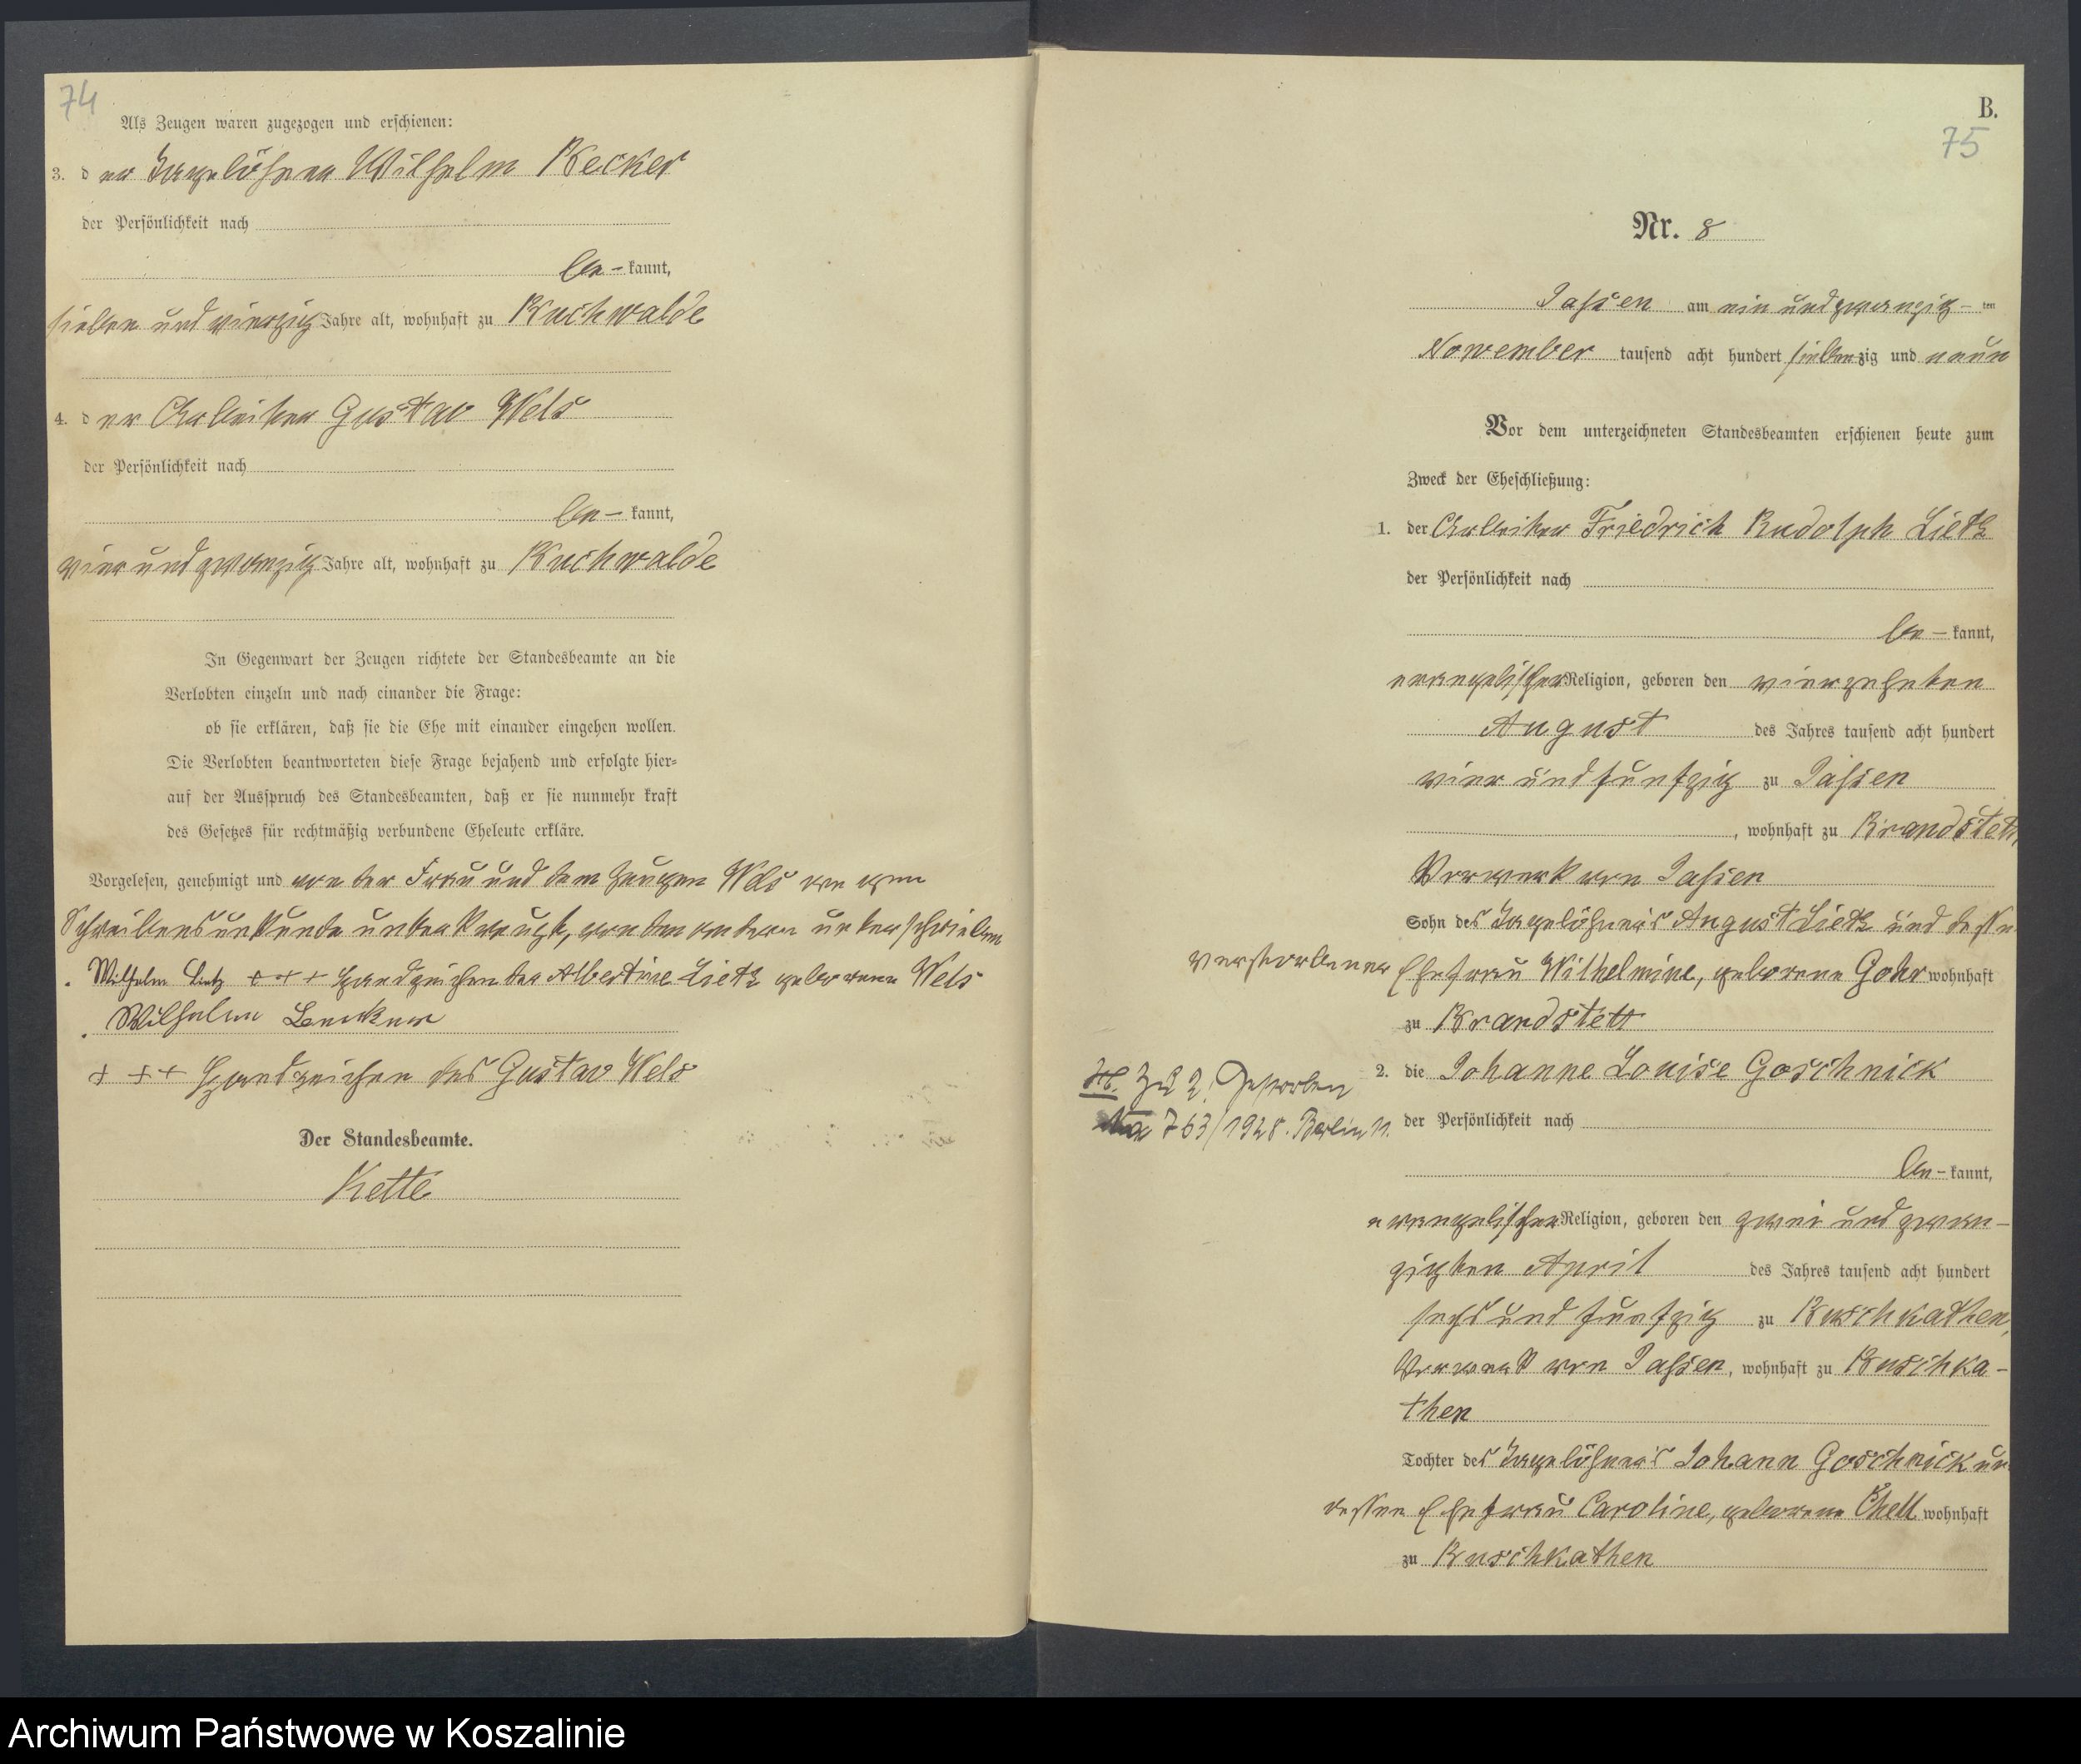 74
Als Zeugen waren zugezogen und erschienen:
3. der Tagelöhner Wilhelm
der Persönlichkeit nach
be-kannt,
sieben und vierzig Jahre alt, wohnhaft zu Buchwalde
4. der Arbeiter Gustav Wels
der Persönlichkeit nach
be-kannt,
vier und zwanzig Jahre alt, wohnhaft zu Buchwalde
In Gegenwart der Zeugen richtete der Standesbeamte an die
Verlobten einzeln und nach einander die Frage:
ob sie erklären, daß sie die Ehe mit einander eingehen wollen.
Die Verlobten beantworteten diese Frage bejahend und erfolgte hier-
auf der Ausspruch des Standesbeamten, daß er sie nunmehr kraft
des Gesetzes für rechtmäßig verbundene Eheleute erkläre.
Vorgelesen, genehmigt und von der Frau und dem Zeugen Wels wegen
Schreibensunkunde unterkreuzt, von den andern unterschrieben
Wilhelm Lietz +++ Handzeichen der Albertine Lietz geborene Wels
Wilhelm
+++ Handzeichen des Gustav Wels
Der Standesbeamte.
Kette
B.
75
Nr. 8
Jassen am ein und zwanzig-ten
November tausend acht hundert siebenzig und neun
Vor dem unterzeichneten Standesbeamten erschienen heute zum
Zweck der Eheschließung:
1. der Arbeiter Friedrich Rudolph Lietz
der Persönlichkeit nach
be-kannt,
evangelischer Religion, geboren den vierzehnten
August des Jahres tausend acht hundert
vier und funfzig zu Jassen
, wohnhaft zu Brandstett,
Vorwerk von Jassen
Sohn des Tagelöhners August Lietz und dessen
verstorbener Ehefrau Wilhelmine, geborene Gohr wohnhaft
zu Brandstett
2. die Johanne Louise Goschnick
H. Zu 2. Gestorben
763/1928. Berlin 11.
der Persönlichkeit nach
be-kannt,
evangelischer Religion, geboren den zwei und zwan-
zigten April des Jahres tausend acht hundert
sechs und funfzig zu Buschkathen,
Vorwerk von Jassen, wohnhaft zu Buschka-
then
Tochter des Tagelöhners Johann Goschnick un
dessen Ehefrau Caroline, geborene wohnhaft
zu Buschkathen
Archiwum Państwowe w Koszalinie